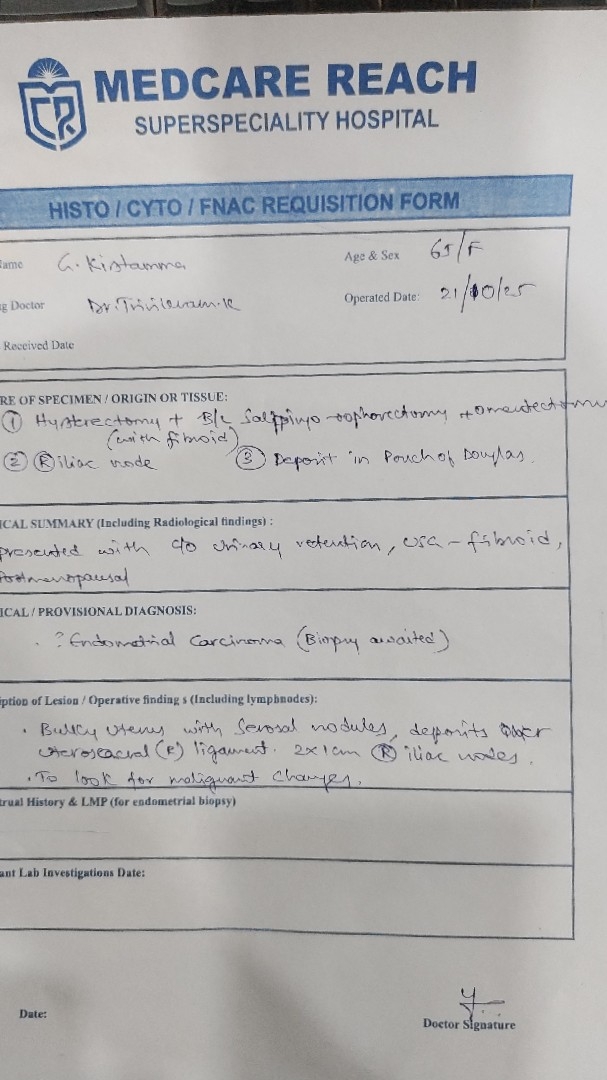 MEDCARE REACH
SUPERSPECIALITY HOSPITAL
HISTO / CYTO / FNAC REQUISITION FORM
ame G. Kistamma Age & Sex 65/F
g Doctor Operated Date: 21/10/25
Received Date
RE OF SPECIMEN / ORIGIN OR TISSUE:
① Hysterectomy + B/L Salpingo-oophorectomy + omentectomy
(with fibroid)
② Ⓡ iliac node ③ Deposit in Pouch of Douglas.
ICAL SUMMARY (Including Radiological findings) :
presented with c/o urinary retention, USG - fibroid,
Postmenopausal
ICAL / PROVISIONAL DIAGNOSIS:
. ? Endometrial Carcinoma (Biopsy awaited)
iption of Lesion / Operative finding s (Including lymphnodes):
• Bulky uterus with Serosal nodules, deposits over
uterosacral (R) ligament. 2x1cm Ⓡ iliac nodes.
• To look for malignant changes.
trual History & LMP (for endometrial biopsy)
ant Lab Investigations Date:
Date:
Doctor Signature